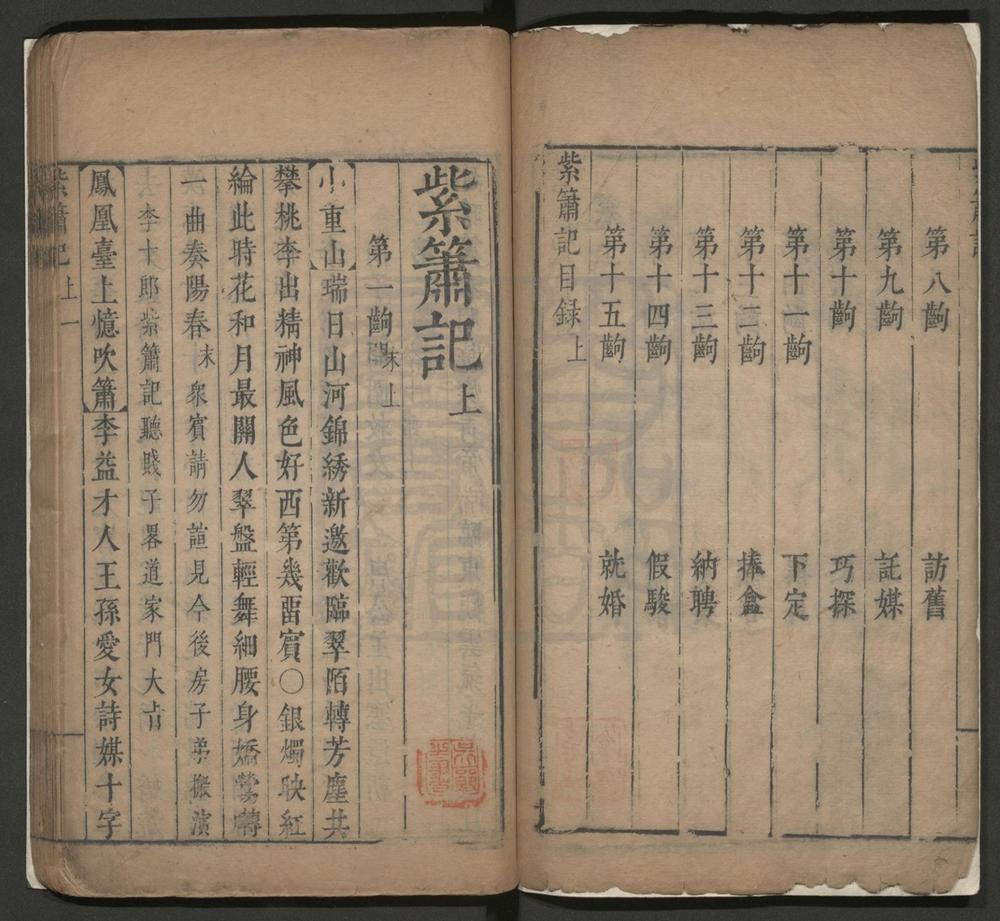 第八齣 訪舊
第九齣 託媒
第十齣 巧探
第十一齣 下定
第十二齣 捧盒
第十三齣 納聘
第十四齣 假駿
第十五齣 就婚
紫簫記目録 上
紫簫記 上
第一齣 末上
【小重山】瑞日山河錦綉新邀歡臨翠陌轉芳塵共
攀桃李出精神風色好西第幾畱賓〇銀燭映紅
綸此時花和月最關人翠盤輕舞細腰身嬌鶯囀
一曲奏陽春末衆賓請勿諠見今後房子弟搬演
李十郎紫簫記聽賤子畧道家門大㫖
【鳳凰臺上憶吹簫】李益才人王孫愛女詩媒十字
紫簫記 上 一